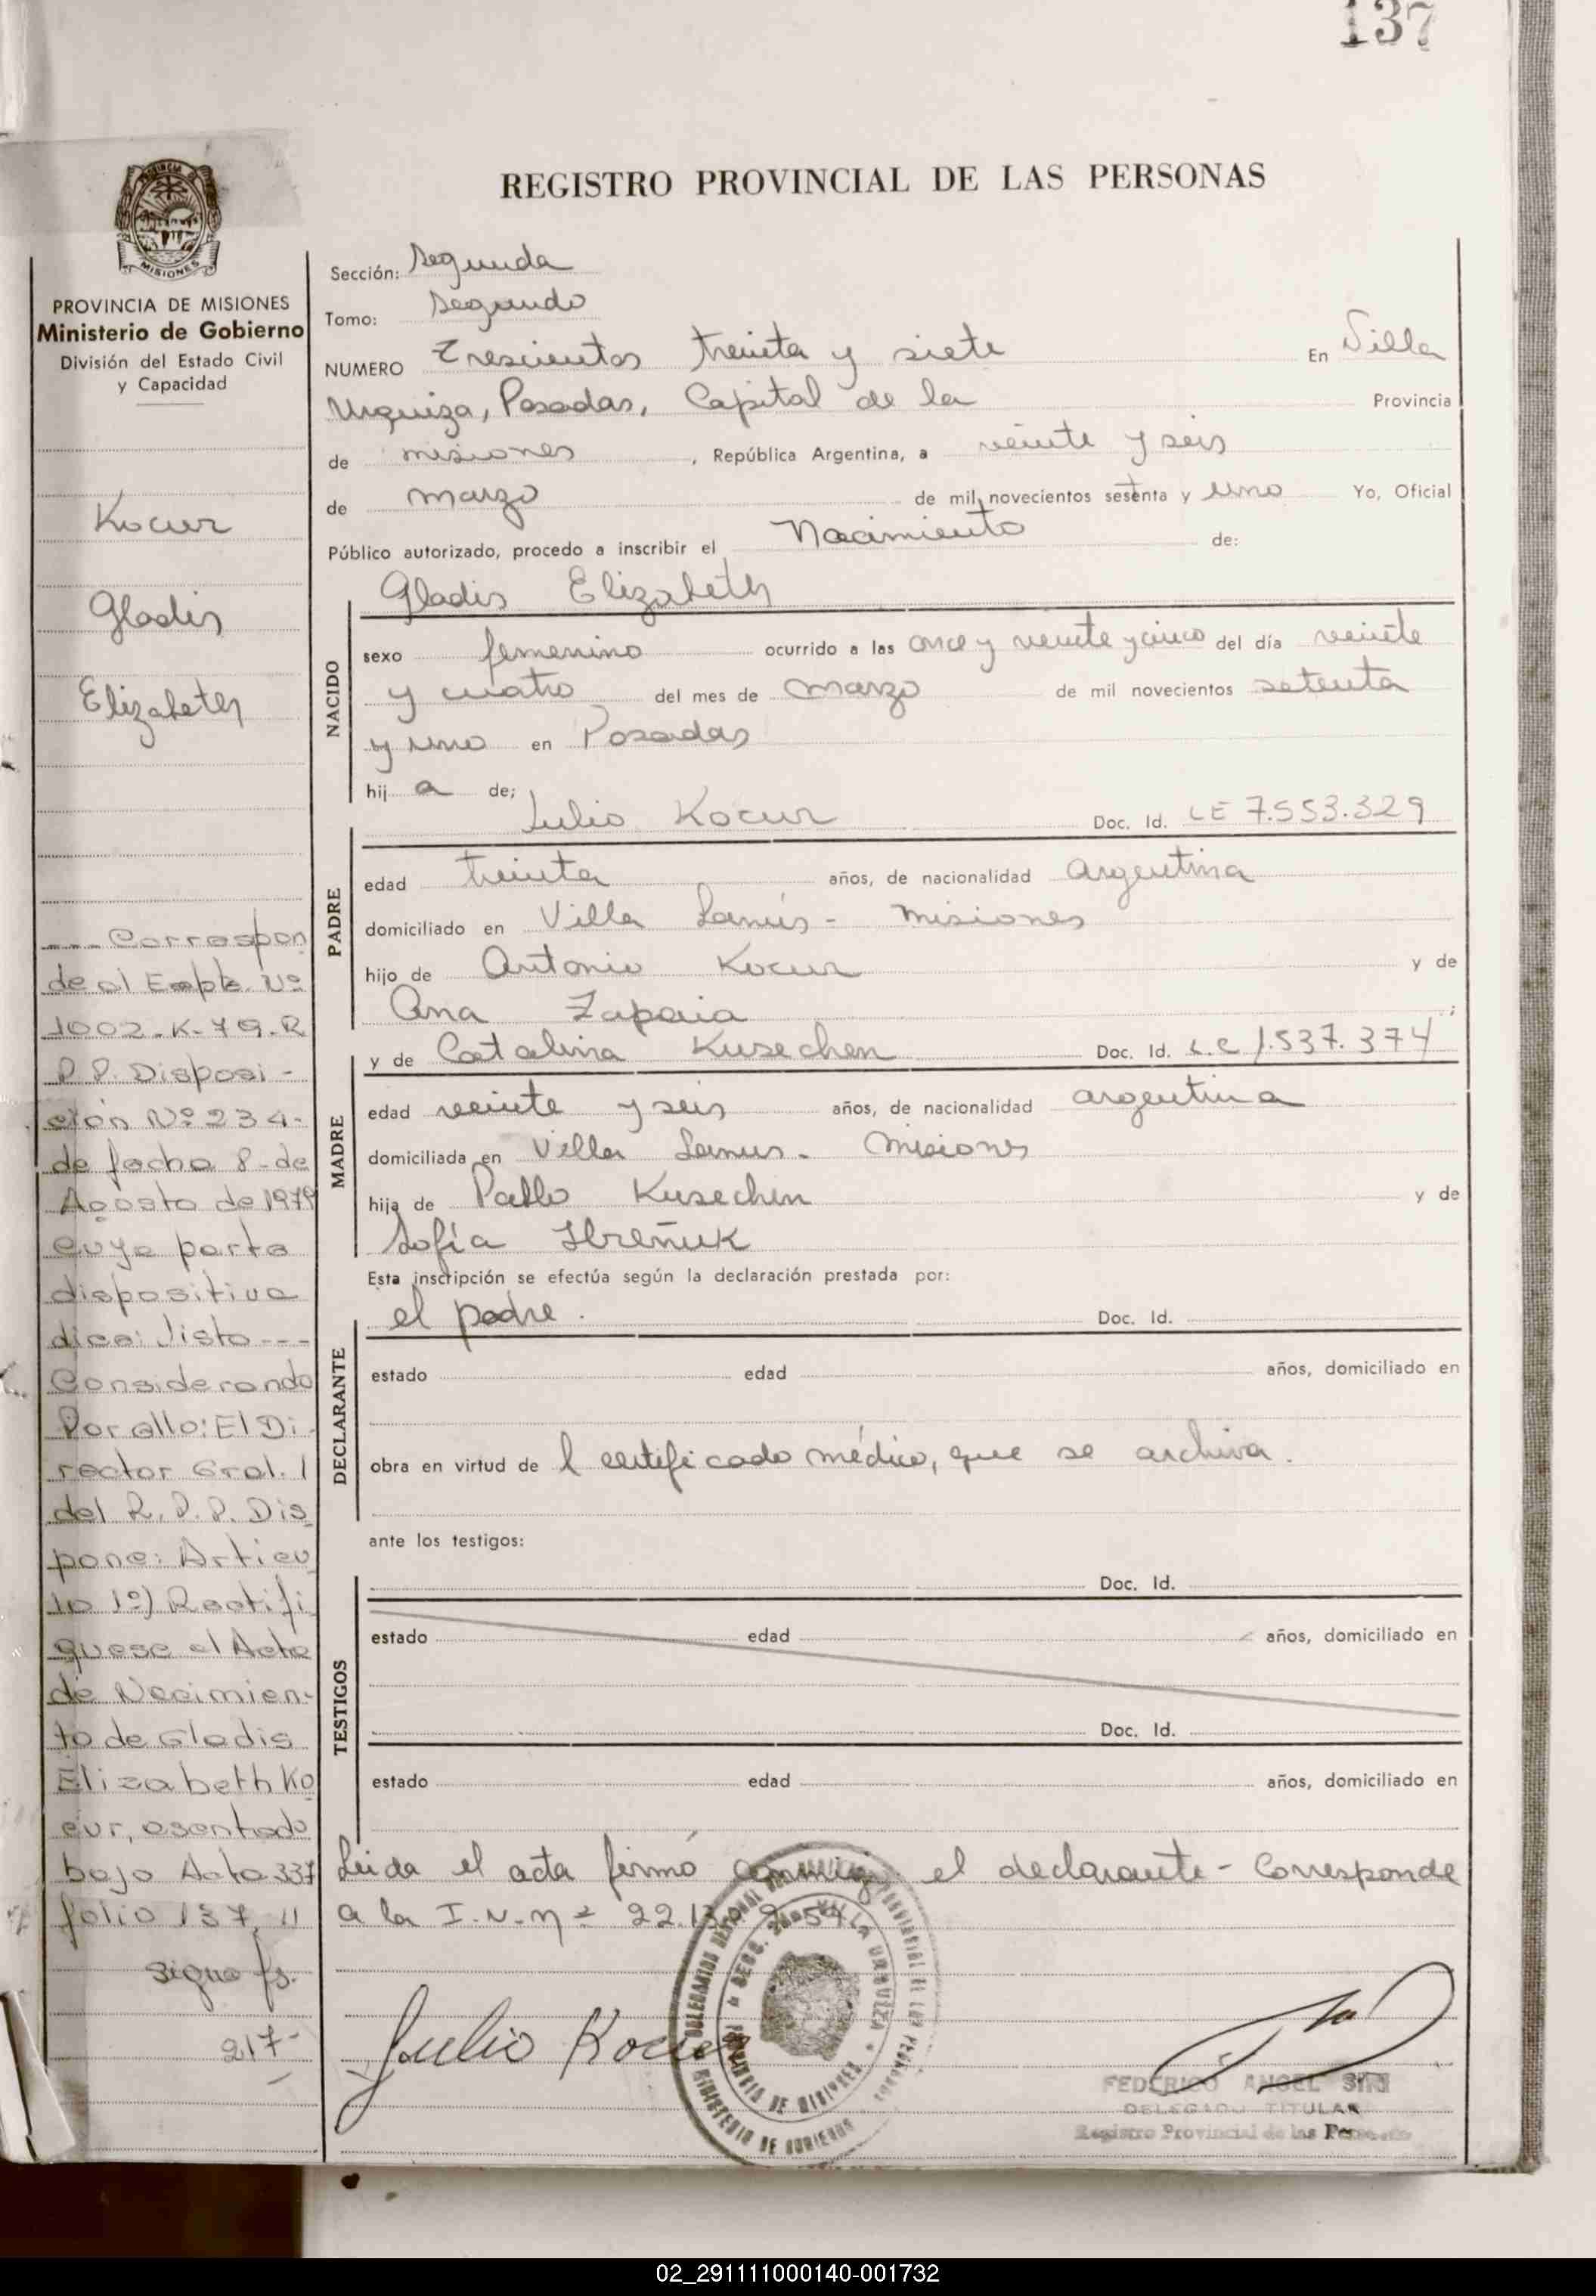 137
REGISTRO PROVINCIAL DE LAS PERSONAS
PROVINCIA DE MISIONES
Ministerio de Gobierno
División del Estado Civil
y Capacidad
Kocur
Gladis
Elizabeth
---- Correspon
de al Expte. Nº
1002-K-79-R
P.P. Disposi-
ción Nº 234-
de fecha 8-de
Agosto de 1979
cuya parte
dispositiva
dice: Visto ---
Considerando
Por ello: El Di-
rector Gral.
del R.P.P. Dis
pone: Artícu
lo 1º) Rectifí
quese el Acta
de Nacimien-
to de Gladis
Elizabeth Ko
cur, asentado
bajo Acta 337
folio 137,
Sigue fs.
217-
Sección: Segunda
Tomo: Segundo
NUMERO Trescientos treinta y siete En Villa
Urquiza, Posadas, Capital de la Provincia
de misiones, República Argentina, a veinte y seis
de marzo de mil novecientos sesenta y uno Yo, Oficial
Público autorizado, procedo a inscribir el Nacimiento de:
Gladis Elizabeth
NACIDO
sexo femenino ocurrido a las once y veinte y cinco del día veinte
y cuatro del mes de marzo de mil novecientos setenta
y uno en Posadas
hij a de;
Julio Kocur Doc. Id. LE 7.553.329
PADRE
edad treinta años, de nacionalidad argentina
domiciliado en Villa Lanús - misiones
hijo de Antonio Kocur y de
Ana Zapaia ;
y de Catalina Kusechen Doc. Id. L.C 1.537.374
MADRE
edad veinte y seis años, de nacionalidad argentina
domiciliada en Villa Lanus - Misiones
hija de Pablo Kusechen y de
Sofía Hreñuk
Esta inscripción se efectúa según la declaración prestada por:
el padre. Doc. Id.
DECLARANTE
estado edad años, domiciliado en
obra en virtud de l certificado médico, que se archiva.
ante los testigos:
Doc. Id.
TESTIGOS
estado edad años, domiciliado en
Doc. Id.
estado edad años, domiciliado en
Leida el acta firmó conmigo el declarante - Corresponde
a la I.N. nº 22.
Julio Kocur
FEDERICO ANGEL
DELEGADO TITULAR
Registro Provincial de las Personas
02_291111000140-001732